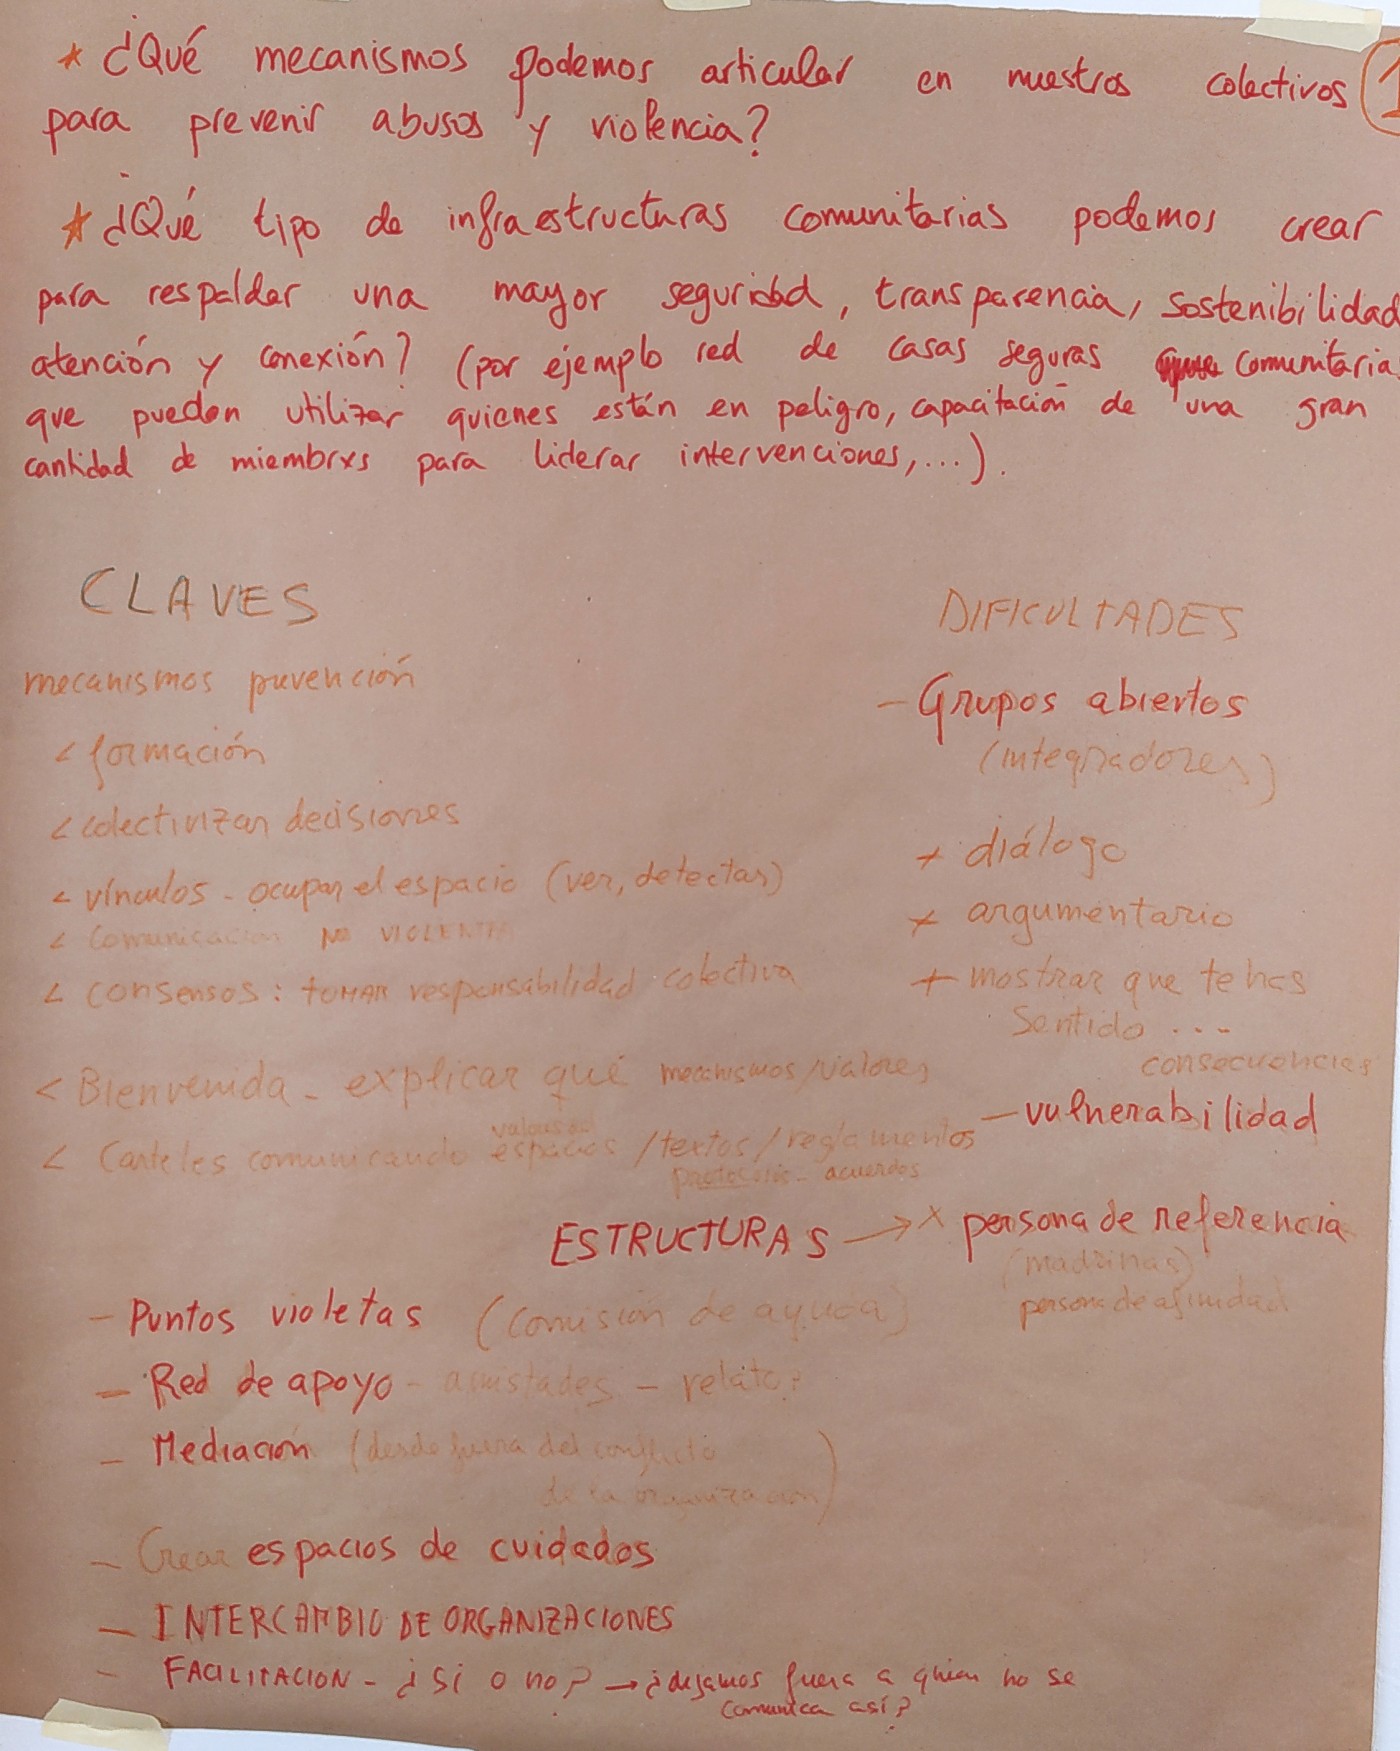 * ¿Qué mecanismos podemos articular en nuestros colectivos 1
para prevenir abusos y violencia?
* ¿Qué tipo de infraestructuras comunitarias podemos crear
para respaldar una mayor seguridad, transparencia, sostenibilidad
atención y conexión? (por ejemplo red de casas seguras comunitaria
que puedan utilizar quienes están en peligro, capacitación de una gran
cantidad de miembrxs para liderar intervenciones,...).
CLAVES
mecanismos prevención
< formación
< colectivizar decisiones
< vínculos - ocupar el espacio (ver, detectar)
< Comunicación NO VIOLENTA
< consensos: tomar responsabilidad colectiva
< Bienvenida - explicar qué mecanismos/valores
valores
< Carteles comunicando espacios /textos/reglamentos
protocolos - acuerdos
DIFICULTADES
- Grupos abiertos
(integradores)
+ diálogo
+ argumentario
+ mostrar que te has
Sentido ....
consecuencias
- vulnerabilidad
ESTRUCTURAS → x persona de referencia
(madrinas)
persona de afinidad
- Puntos violetas (Comisión de ayuda)
- Red de apoyo - amistades - relato?
- Mediación (desde fuera del conflicto
de la organización)
- Crear espacios de cuidados
- INTERCAMBIO DE ORGANIZACIONES
- FACILITACION - ¿Sí o no? → ¿dejamos fuera a quien no se
comunica así?